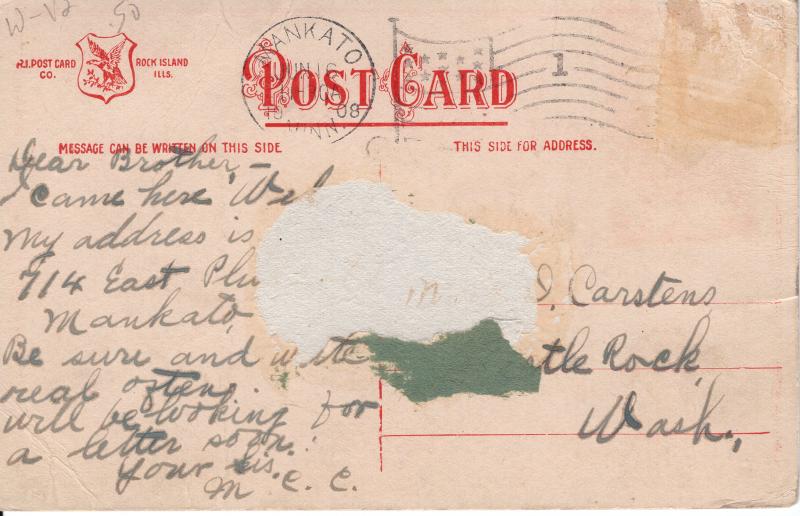 W-V2 50
R.I. POST CARD CO.
ROCK ISLAND ILLS.
MANKATO
JUN 16
1908
MINN.
1
POST CARD
MESSAGE CAN BE WRITTEN ON THIS SIDE
THIS SIDE FOR ADDRESS.
Dear Brother,-
I came here Wel
My address is
714 East Plu
Mankato,
Be sure and write
real often.
will be looking for
a letter soon.
Your sis.
M. C. C.
J. Carstens,
stle Rock,
Wash.,